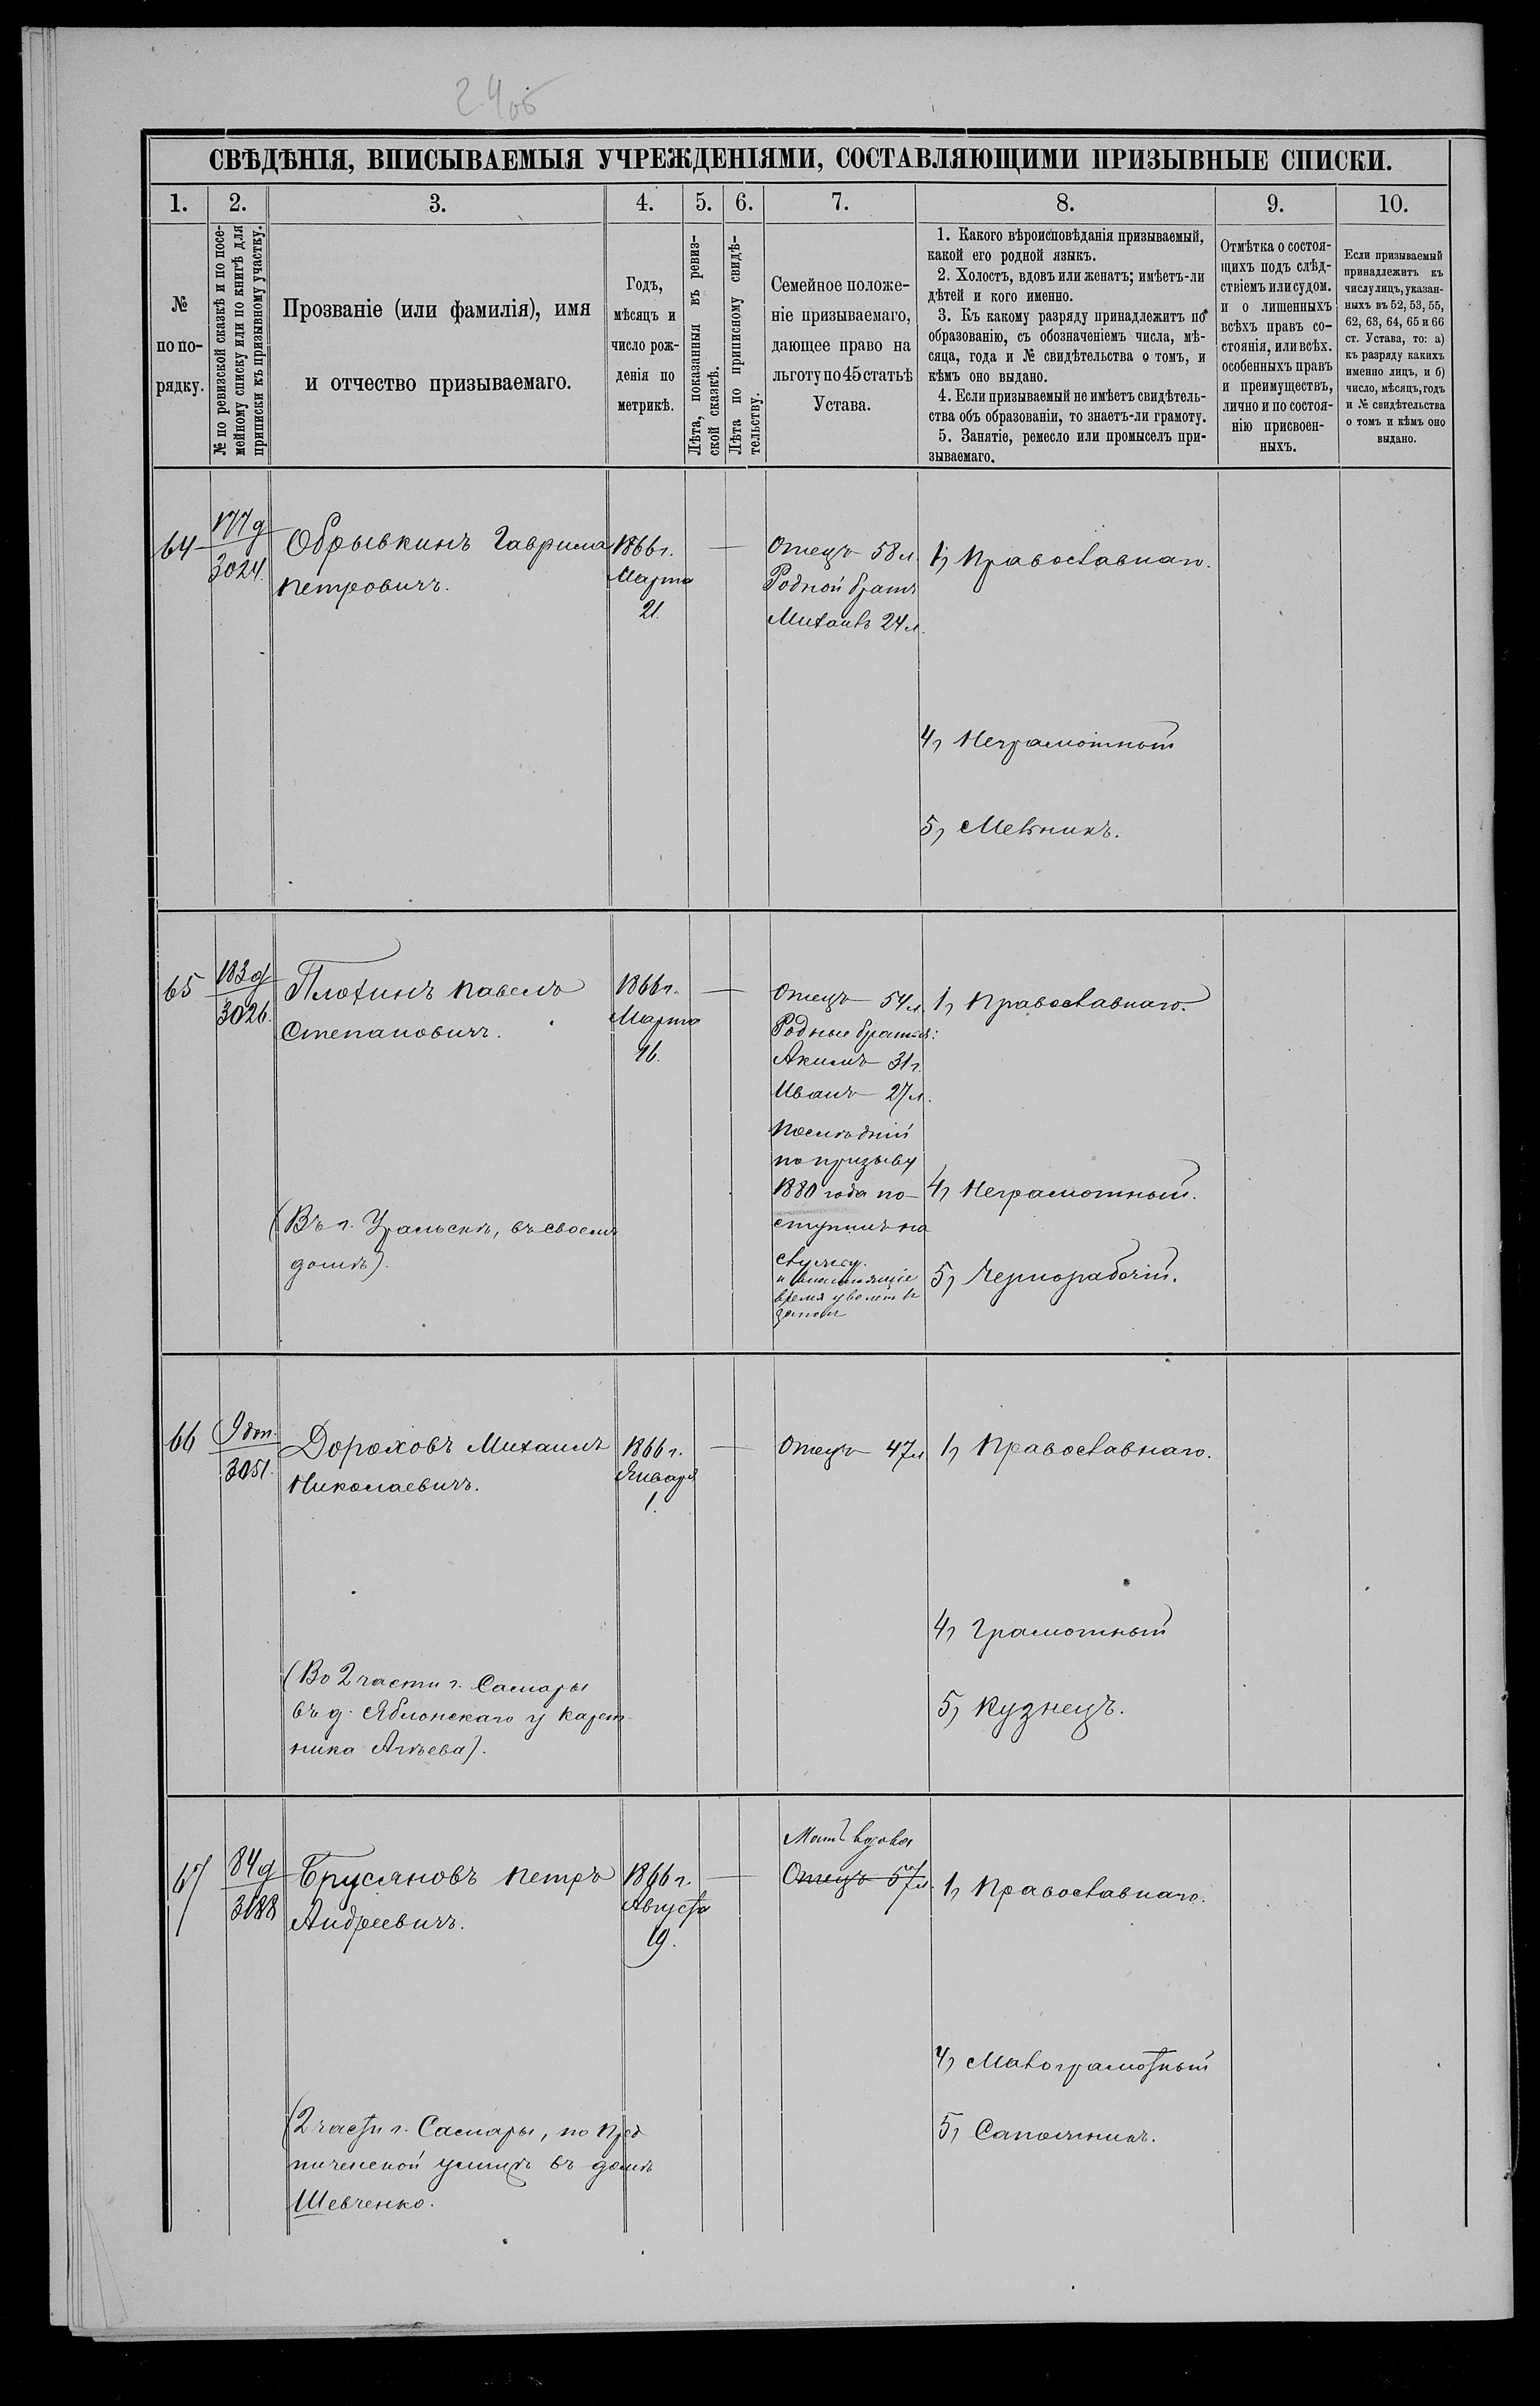 24об
СВѢДѢНІЯ, ВПИСЫВАЕМЫЯ УЧРЕЖДЕНІЯМИ, СОСТАВЛЯЮЩИМИ ПРИЗЫВНЫЕ СПИСКИ.
1. 2. 3. 4. 5. 6. 7. 8. 9. 10.
№
по по-
рядку.
№ по ревизской сказкѣ и по посе-
мейному списку или по книгѣ для
приписки къ призывному участку.
Прозваніе (или фамилія), имя
и отчество призываемаго.
Годъ,
мѣсяцъ и
число рож-
денія по
метрикѣ.
Лѣта, показанныя въ ревиз-
ской сказкѣ.
Лѣта по приписному свидѣ-
тельству.
Семейное положе-
ніе призываемаго,
дающее право на
льготу по 45 статьѣ
Устава.
1. Какого вѣроисповѣданія призываемый,
какой его родной языкъ.
2. Холостъ, вдовъ или женатъ; имѣетъ-ли
дѣтей и кого именно.
3. Къ какому разряду принадлежитъ по
образованію, съ обозначеніемъ числа, мѣ-
сяца, года и № свидѣтельства о томъ, и
кѣмъ оно выдано.
4. Если призываемый не имѣетъ свидѣтель-
ства объ образованіи, то знаетъ-ли грамоту.
5. Занятіе, ремесло или промыселъ при-
зываемаго.
Отмѣтка о состоя-
щихъ подъ слѣд-
ствіемъ или судом.
и о лишенныхъ
всѣхъ правъ со-
стоянія, или всѣх.
особенныхъ правъ
и преимуществъ,
лично и по состоя-
нію присвоен-
ныхъ.
Если призываемый
принадлежитъ къ
числу лицъ, указан-
ныхъ въ 52, 53, 55,
62, 63, 64, 65 и 66
ст. Устава, то: а)
къ разряду какихъ
именно лицъ, и б)
число, мѣсяцъ, годъ
и № свидѣтельства
о томъ и кѣмъ оно
выдано.
64
177 д
3024.
Обрывкинъ Гаврила
Петровичъ.
1866 г.
Марта
21.
Отецъ 58 л.
Родной братъ
Михаилъ 24 л.
1, Православнаго.
4, Неграмотный
5, Мельникъ.
65
183 д
3026.
Плохинъ Павелъ
Степановичъ.
(Въ г. Уральскѣ, въ своемъ
домѣ).
1866 г.
Марта
16.
Отецъ 54 л.
Родные братья:
Акимъ 31 г.
Иванъ 27 л.
Послѣдній
по призыву
1880 года по-
ступилъ на
службу.
время уволенъ въ
запасъ
1, Православнаго.
4, Неграмотный.
5, Чернорабочій.
66
9 доп.
3051.
Дороховъ Михаилъ
Николаевичъ.
(Во 2 части г. Самары
въ д. Яблонскаго у карет-
ника Агѣева).
1866 г.
Января
1.
Отецъ 47 л.
1, Православнаго.
4, Грамотный
5, Кузнецъ.
67
84 д
3188
Брусяновъ Петръ
Андреевичъ.
(2 части г. Самары, по Пред
теченской улицѣ въ домѣ
Шевченко.
1866 г.
Августа
19.
Мать вдова
Отецъ 57 л.
1, Православнаго.
4, Малограмотный
5, Сапожникъ.